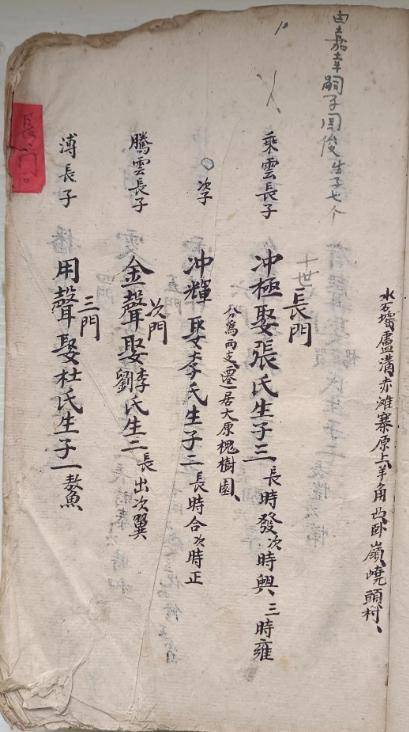 水石壋盧溝赤灘寨原上羊角凸卧嶺嶢頭村、
由嘉幸嗣子同俊生子七个
長門
乘雲長子 冲極娶張氏生子三 長時發次時興、三時雍
分爲兩支遷居大原槐樹園、
○次子 冲輝娶李氏生子二 長時合次時正
次門
騰雲長子 金聲娶李劉氏生二 長出次翼
三門
溥長子 用聲娶杜氏生子一敖魚
長門